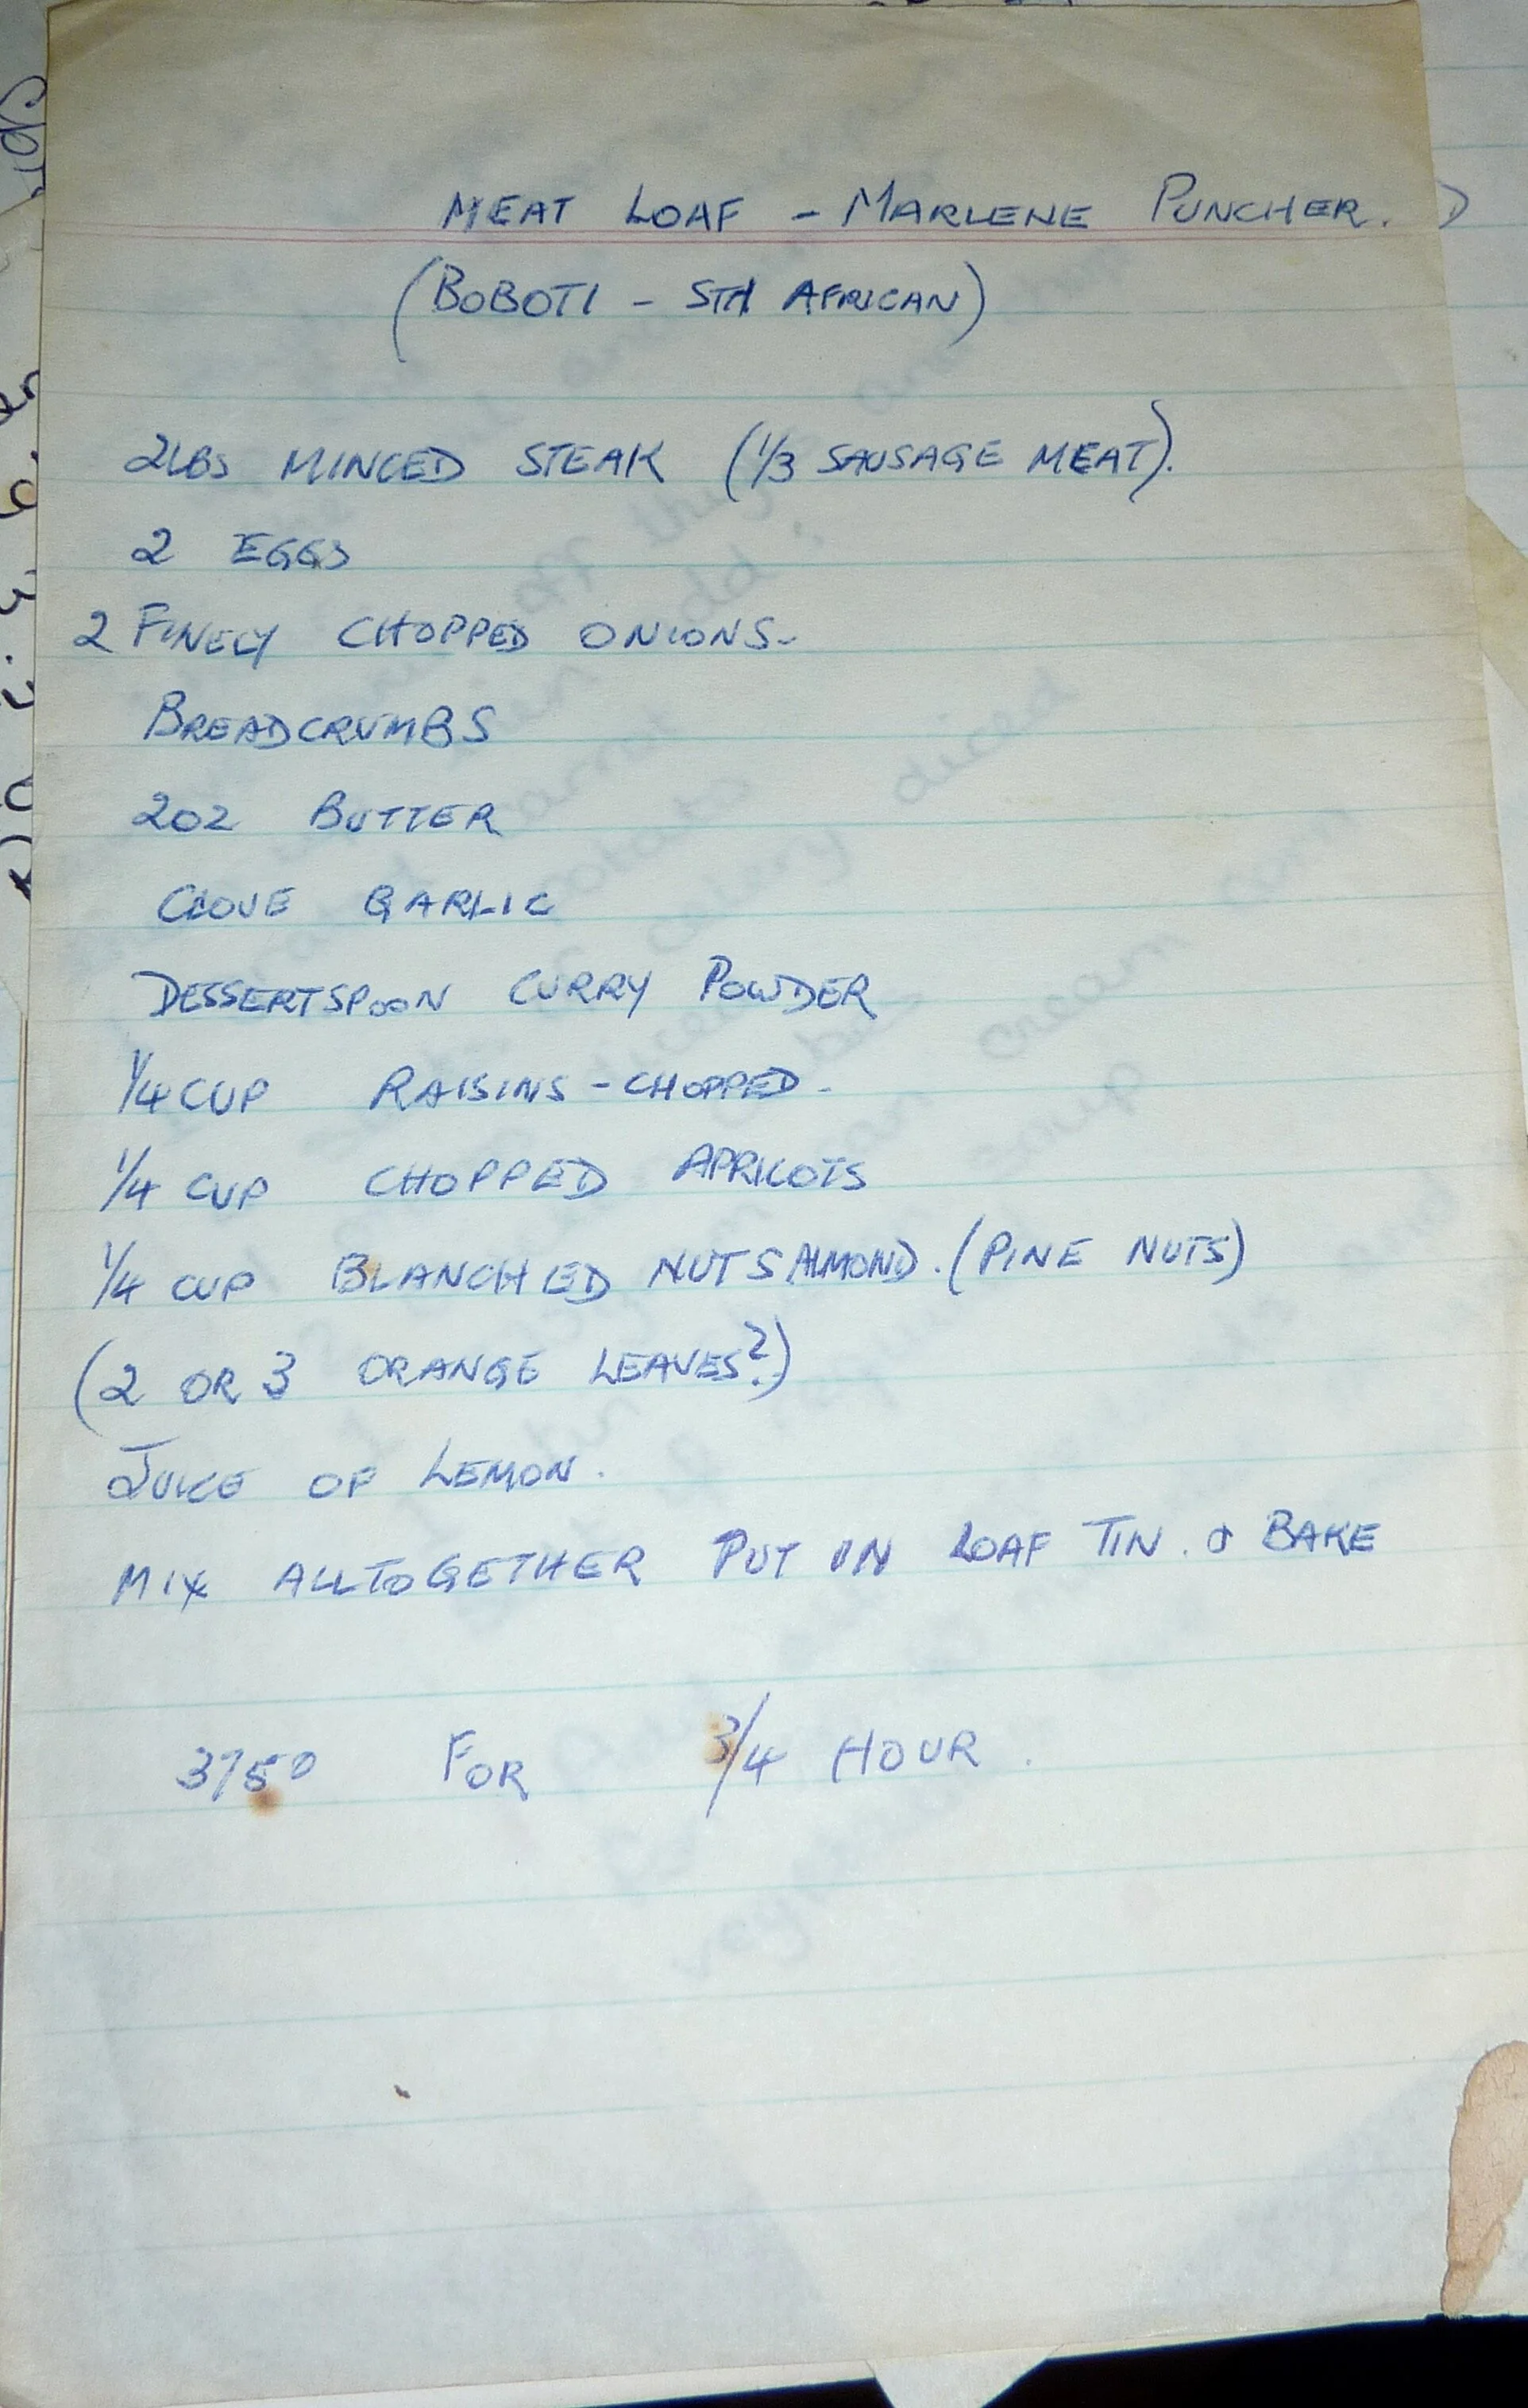 MEAT LOAF - MARLENE PUNCHER.
(BOBOTI - STH AFRICAN)
2LBS MINCED STEAK (1/3 SAUSAGE MEAT).
2 EGGS
2 FINELY CHOPPED ONIONS-
BREADCRUMBS
2OZ BUTTER
CLOVE GARLIC
DESSERTSPOON CURRY POWDER
1/4 CUP RAISINS - CHOPPED-
1/4 CUP CHOPPED APRICOTS
1/4 CUP BLANCHED NUTS ALMOND. (PINE NUTS)
(2 OR 3 ORANGE LEAVES?)
JUICE OF LEMON.
MIX ALLTOGETHER PUT IN LOAF TIN. & BAKE
375° FOR 3/4 HOUR.